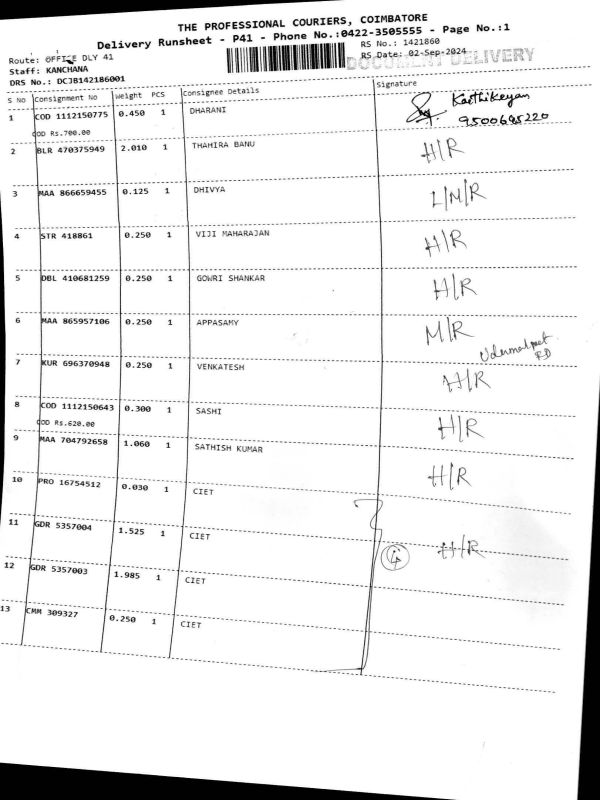 THE PROFESSIONAL COURIERS, COIMBATORE
Delivery Runsheet - P41 - Phone No.:0422-3505555 - Page No.:1
Route: OFFICE DLY 41
RS No.: 1421860
Staff: KANCHANA
RS Date: 02-Sep-2024
DOCUMENT DELIVERY
DRS No.: DCJB142186001
S No Consignment No Weight PCS Consignee Details Signature
1 COD 1112150775 0.450 1 DHARANI Karthikeyan
COD Rs.700.00 9500695220
2 BLR 470375949 2.010 1 THAHIRA BANU H/R
3 MAA 866659455 0.125 1 DHIVYA L/M/R
4 STR 418861 0.250 1 VIJI MAHARAJAN H/R
5 DBL 410681259 0.250 1 GOWRI SHANKAR H/R
6 MAA 865957106 0.250 1 APPASAMY M/R
Udermalpet
RD
7 KUR 696370948 0.250 1 VENKATESH H/R
8 COD 1112150643 0.300 1 SASHI H/R
COD Rs.620.00
9 MAA 704792658 1.060 1 SATHISH KUMAR H/R
10 PRO 16754512 0.030 1 CIET
11 GDR 5357004 1.525 1 CIET 4 H/R
12 GDR 5357003 1.985 1 CIET
13 CMM 309327 0.250 1 CIET